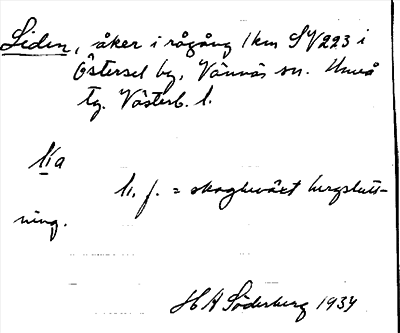 Liden, åker i rågång 1 km SV 223 i
Östersel by, Vännäs sn. Umeå
tg. Västerb. l.
li, f. = skogbeväxt bergslutt-
ning.
H A Söderberg 1934